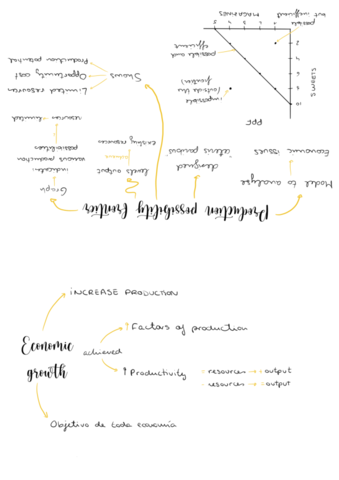 Production possibility frontier
Model to analyse
economic issues
designed
ceteris paribus
levels output
existing resources
Graph
indicates:
various production
possibilities
resources limited
Shows
Limited resources
Opportunity cost
Production potential
PPF
SWEETS
impossible
(outside the
frontier)
possible and
efficient
possible
but inefficient
MAGAZINES
INCREASE PRODUCTION
Economic
growth
achieved
↑ Factors of production
↑ Productivity
resources → output
resources → output
Objetivo de toda economía